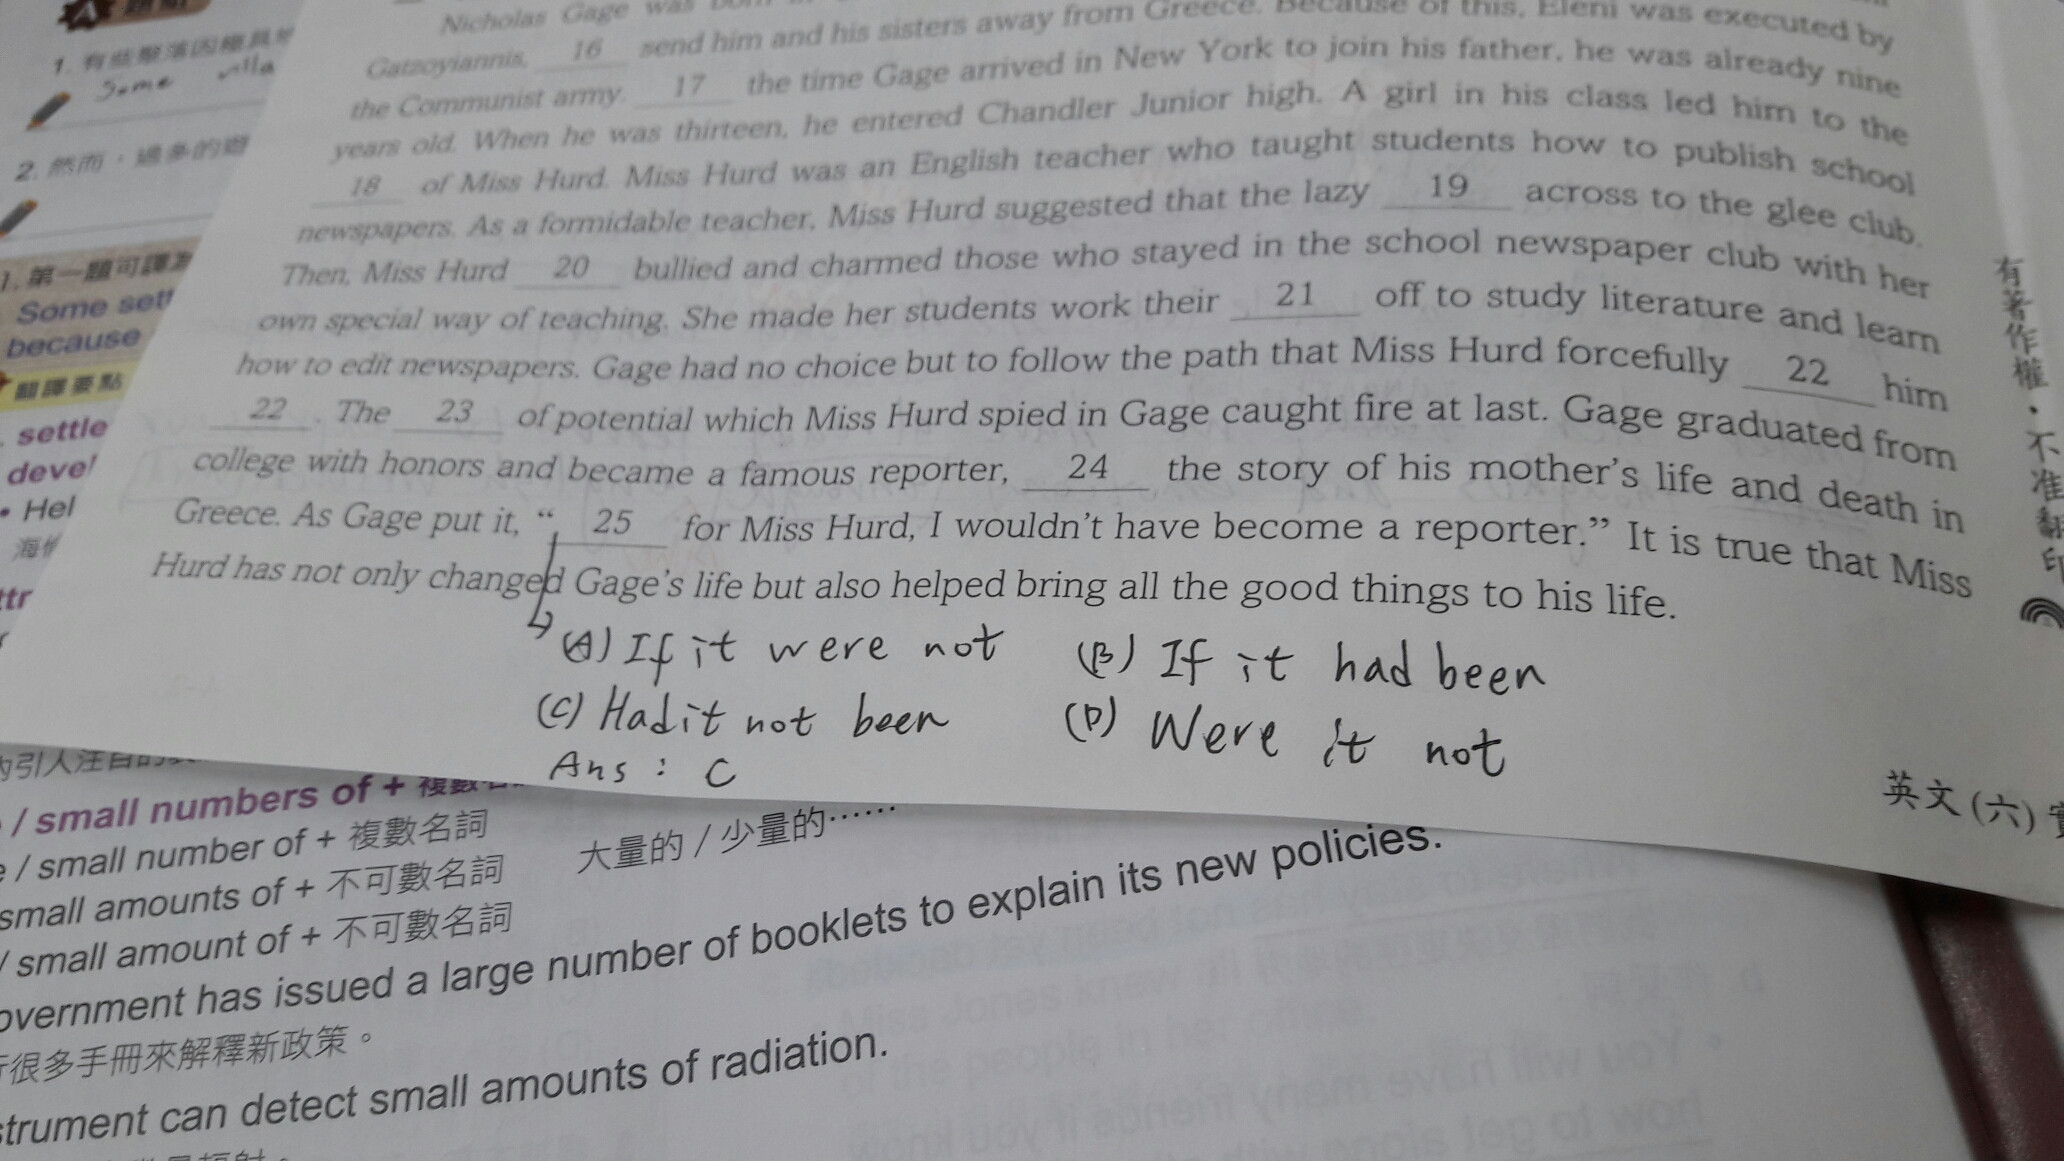 A
1. 有些聚落因極具
Some villa
2. 然而，過多的遊
1. 第一題可譯為
Some sett
because
翻譯要點
settle
deve
• Hel
Nicholas Gage was born
Gatzoyiannis, 16 send him and his sisters away from Greece. Because of this, Eleni was executed by
the Communist army. 17 the time Gage arrived in New York to join his father, he was already nine
years old. When he was thirteen, he entered Chandler Junior high. A girl in his class led him to the
18 of Miss Hurd. Miss Hurd was an English teacher who taught students how to publish school
newspapers. As a formidable teacher, Miss Hurd suggested that the lazy 19 across to the glee club.
Then, Miss Hurd 20 bullied and charmed those who stayed in the school newspaper club with her
own special way of teaching. She made her students work their 21 off to study literature and learn
how to edit newspapers. Gage had no choice but to follow the path that Miss Hurd forcefully 22 him
22 . The 23 of potential which Miss Hurd spied in Gage caught fire at last. Gage graduated from
college with honors and became a famous reporter, 24 the story of his mother's life and death in
Greece. As Gage put it, “ 25 for Miss Hurd, I wouldn't have become a reporter.” It is true that Miss
Hurd has not only changed Gage's life but also helped bring all the good things to his life.
(A) If it were not (B) If it had been
(C) Had it not been (D) Were it not
Ans : C
有著作權・不准翻印
英文(六)
引人注目的
/ small numbers of + 複數名
/ small number of + 複數名詞
small amounts of + 不可數名詞
/ small amount of + 不可數名詞
大量的 / 少量的……
overnment has issued a large number of booklets to explain its new policies.
很多手冊來解釋新政策。
strument can detect small amounts of radiation.